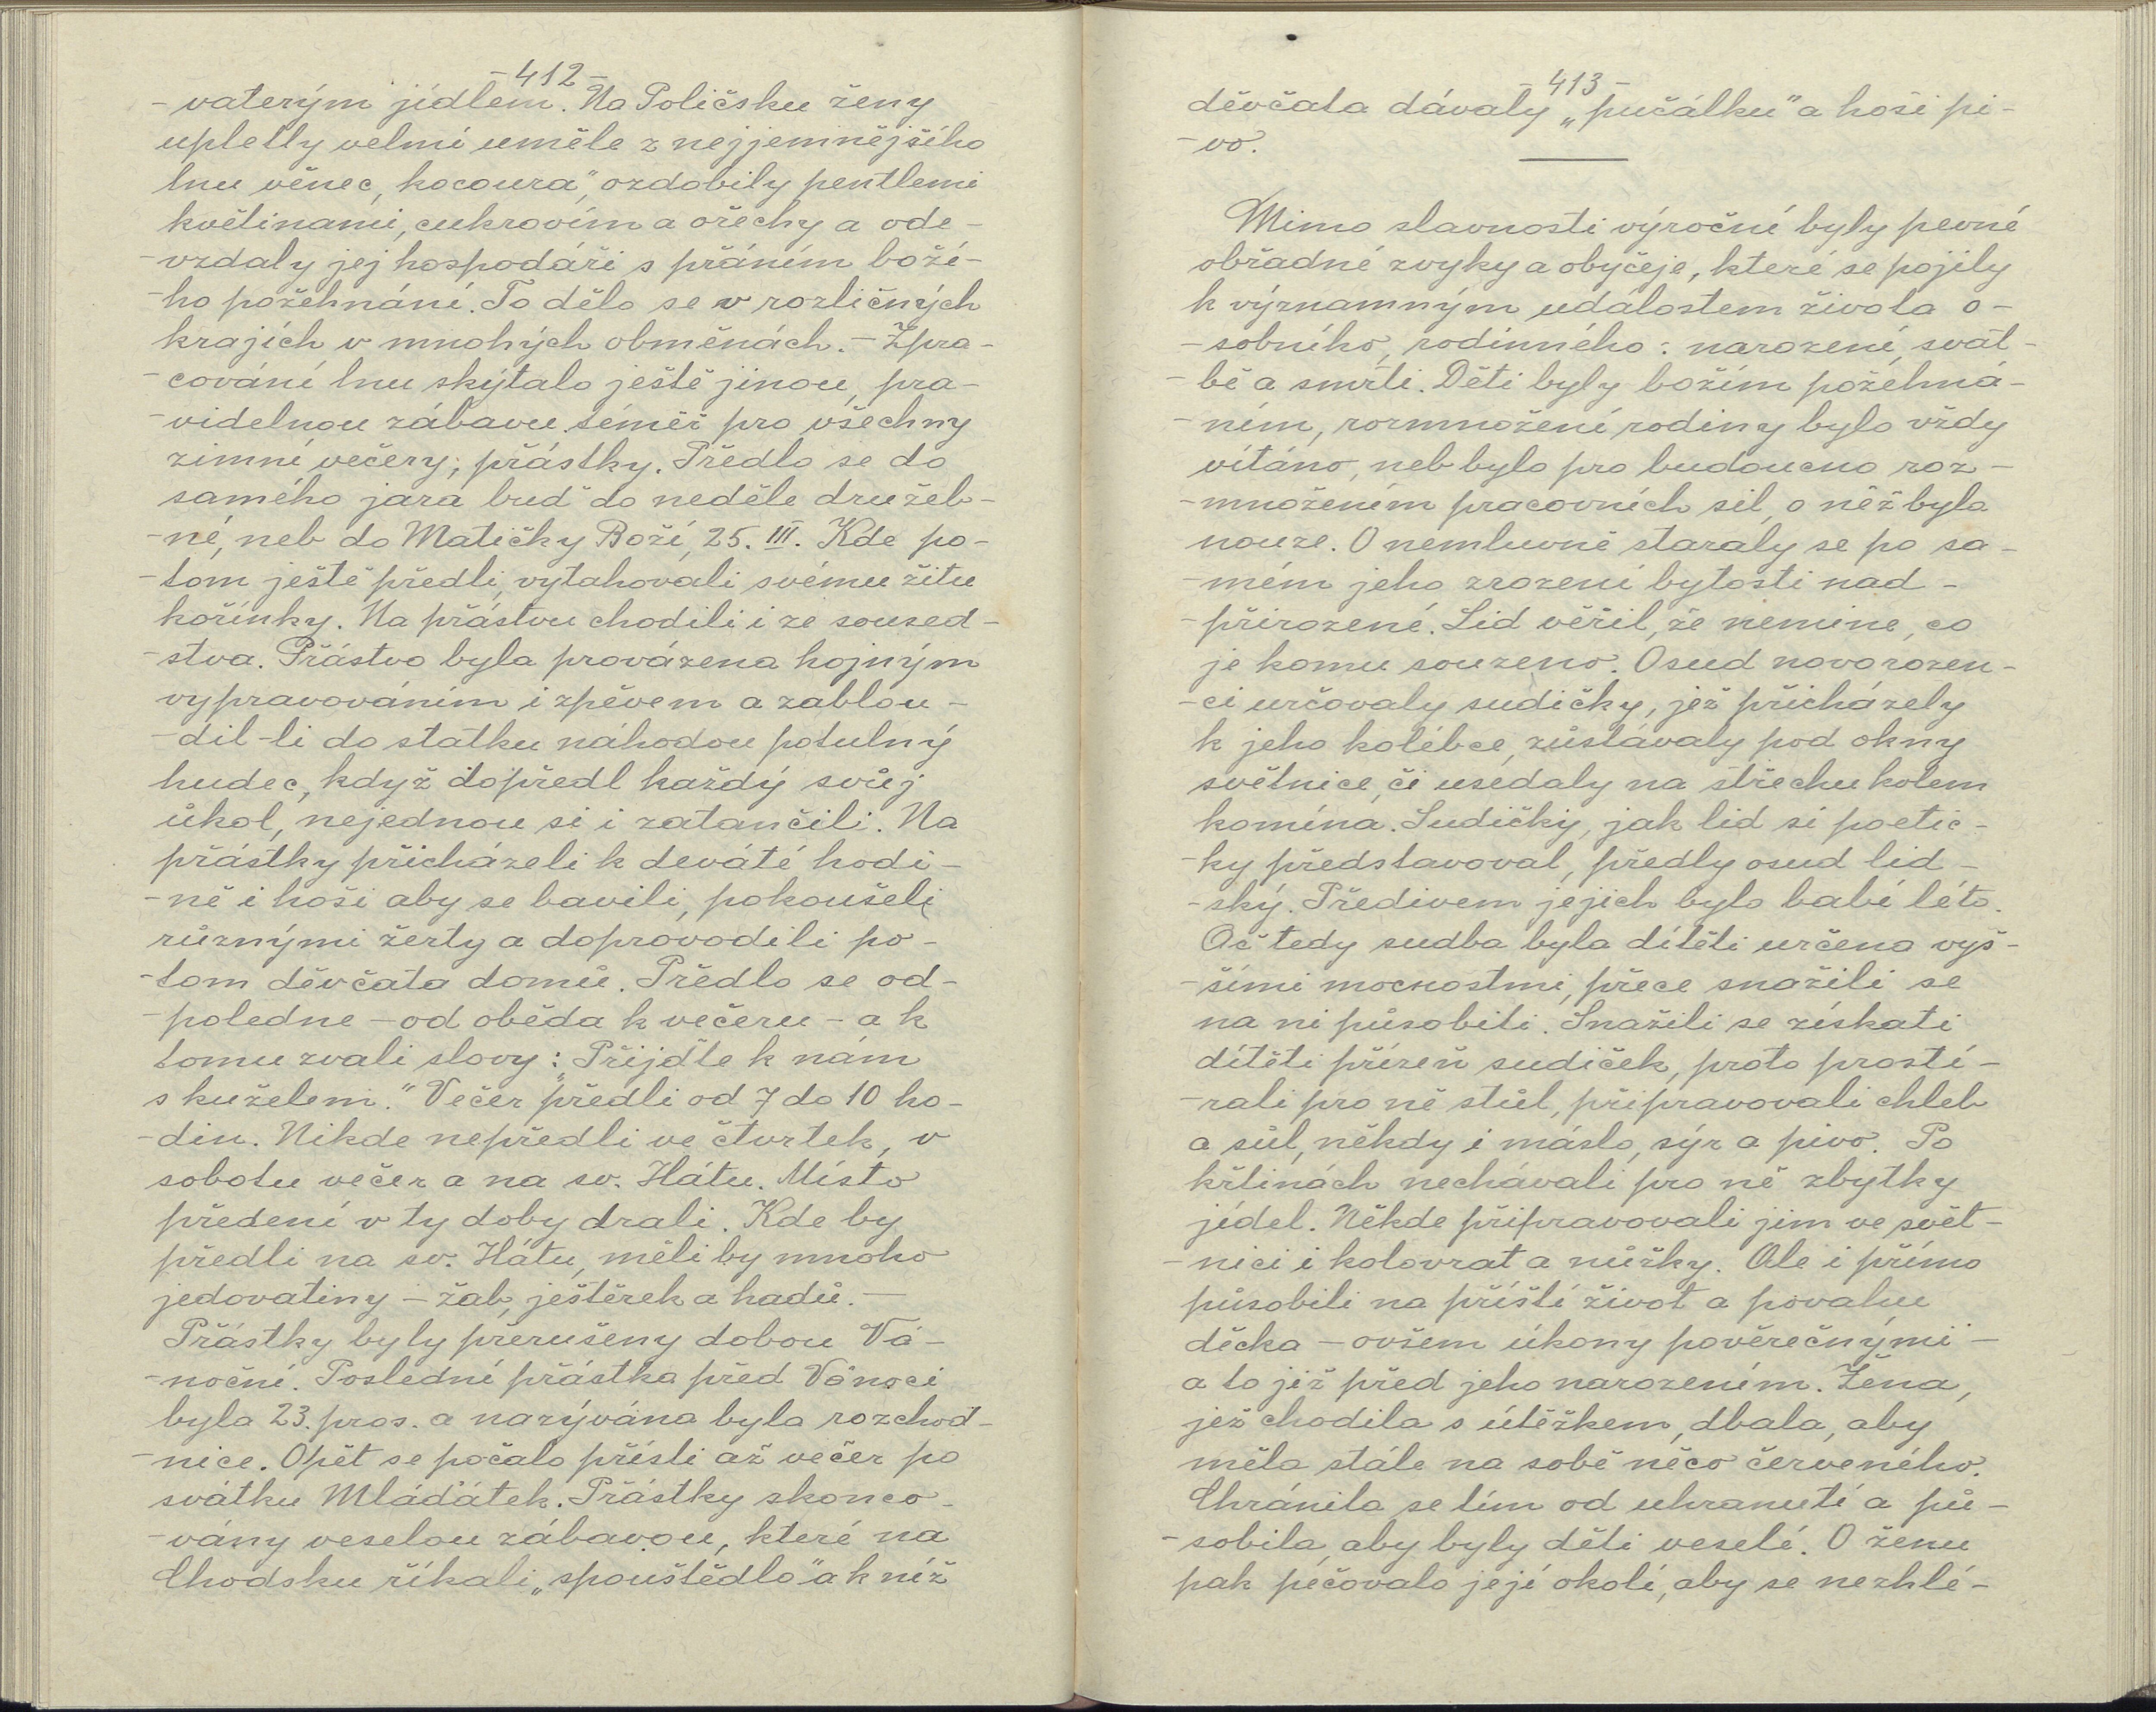 - 412 -
- vaterým jídlem. Na Poličsku ženy
upletly velmi uměle z nejjemnějšího
lnu věnec, kocoura", ozdobily pentlemi
květinami, cukrovím a ořechy a ode-
- vzdaly jej hospodáři s přáním boží-
- ho požehnání. To dělo se v rozličných
krajích v mnohých obměnách. - Zpra-
- cování lnu skýtalo ještě jinou, pra-
- videlnou zábavu téměř pro všechny
zimní večery; přástky. Předlo se do
samého jara buď do neděle družeb-
- né, neb do Matičky Boží, 25. III. Kde po-
- tom ještě předli, vytahovali svému žitu
kořínky. Na přástvu chodili i ze soused-
- stva. Přástva byla provázena hojným
vypravováním i zpěvem a zablou-
- dil-li do statku náhodou potulný
hudec, když dopředl každý svůj
úkol, nejednou si i zatančili. Na
přástky přicházeli k deváté hodi-
- ně i hoši aby se bavili, pokoušeli
různými žerty a doprovodili po-
- tom děvčata domů. Předlo se od-
- poledne - od oběda k večeru - a k
tomu zvali slovy: „Přijďte k nám
s kuželem." Večer předli od 7 do 10 ho-
- din. Nikde nepředli ve čtvrtek, v
sobotu večer a na sv. Hátu. Místo
předení v ty doby drali. Kde by
předli na sv. Hátu, měli by mnoho
jedovatiny - žab, ještěrek a hadů. -
Přástky byly přerušeny dobou Vá-
- noční. Poslední přástka před Vánoci
byla 23. pros. a nazývána byla rozchod-
- nice. Opět se počalo přísti až večer po
svátku Mláďátek. Přástky skonco-
- vány veselou zábavou, které na
Chodsku říkali „spouštědlo" a k níž
- 413 -
děvčata dávaly „pučálku" a hoši pi-
- vo.
Mimo slavnosti výroční byly pevné
obřadné zvyky a obyčeje, které se pojily
k významným událostem života o-
- sobního, rodinného: narození, svat-
- bě a smrti. Děti byly božím požehná-
- ním, rozmnožení rodiny bylo vždy
vítáno, neb bylo pro budoucno roz-
- množením pracovních sil, o něž byla
nouze. O nemluvně staraly se po sa-
- mém jeho zrození bytosti nad-
- přirozené. Lid věřil, že nemine, co
je komu souzeno. Osud novorozen-
- ci určovaly sudičky, jež přicházely
k jeho kolébce, zůstávaly pod okny
světnice, či usedaly na střechu kolem
komína. Sudičky, jak lid si poetic-
- ky představoval, předly osud lid-
- ský. Předivem jejich bylo babí léto.
Ač tedy sudba byla dítěti určena vyš-
- šími mocnostmi, přece snažili se
na ni působiti. Snažili se získati
dítěti přízeň sudiček, proto prostí-
- rali pro ně stůl, připravovali chleb
a sůl, někdy i máslo, sýr a pivo. Po
křtinách nechávali pro ně zbytky
jídel. Někde připravovali jim ve svět-
- nici i kolovrat a nůžky. Ale i přímo
působili na příští život a povahu
děcka - ovšem úkony pověrečnými -
a to již před jeho narozením. Žena,
jež chodila s útěžkem, dbala, aby
měla stále na sobě něco červeného.
Chránila se tím od uhranutí a pů-
- sobila, aby byly děti veselé. O ženu
pak pečovalo její okolí, aby se nezhlé-